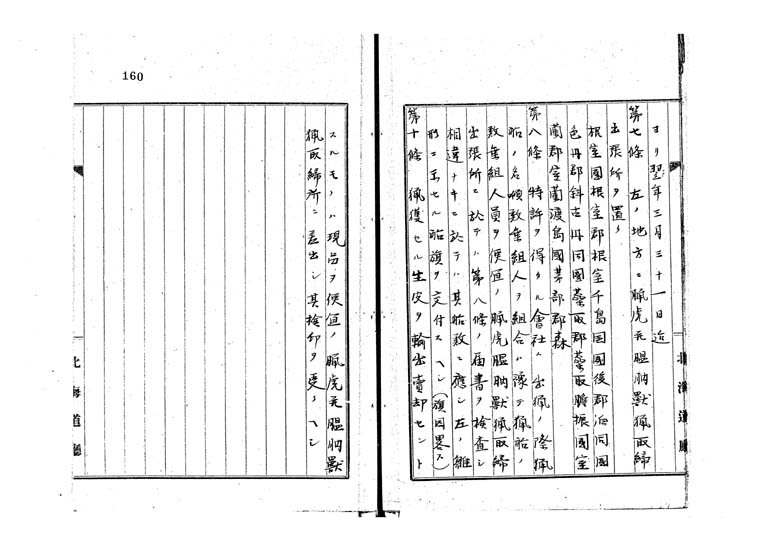 ヨリ翌年三月三十一日迄
第七條 左ノ地方ニ臘虎並膃肭獸猟取締
出張所ヲ置ク
根室國根室郡根室千島国國後郡泊同國
色丹郡斜古丹同國蘂取郡蘂取膽振國室
蘭郡室蘭渡島國茅部郡森
第八條 特許ヲ得タル會社ハ出猟ノ際猟
船ノ名噸数乗組人ヲ組合ハ豫テ猟船ノ
数乗組人員ヲ便宜ノ臘虎膃肭獸猟取締
出張所ニ於テハ第八條ノ届書ヲ検査シ
相違ナキニ於テハ其船数ニ應シ左ノ雛
形ニ玉セル船旗ヲ交付スヘシ(旗図畧ス)
第十條 猟獲セル生皮ヲ輸出賣却セント
北海道廳
160
スルモノハ現品ヲ便宜ノ臘虎並膃肭獸
猟取締所ニ差出シ其検印ヲ受クヘシ
北海道廳